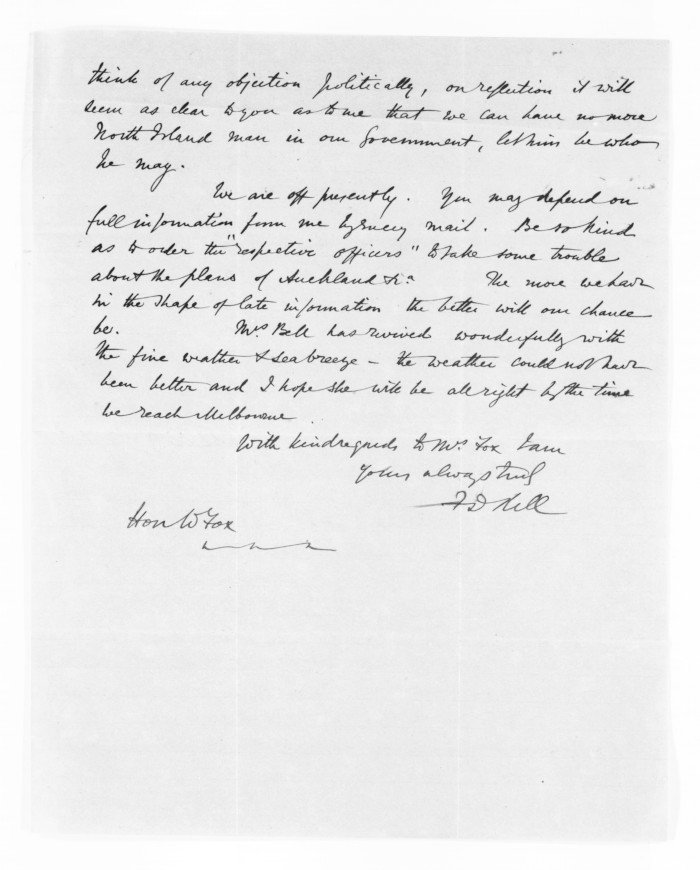 think of any objection politically, on reflection it will
seem as clear to you as to me that we can have no more
North Island man in our Government, let him be who
he may.
We are off presently. You may depend on
full information from me by every mail. Be so kind
as to order the "respective officers" to take some trouble
about the plans of Auckland &c. The more we have
in the shape of late information the better will our chance
be. Mrs Bell has revived wonderfully with
the fine weather & sea breeze – the weather could not have
been better and I hope she will be all right by the time
we reach Melbourne
With kind regards to Mrs Fox I am
Yours always truly
F D Bell
Hon W Fox